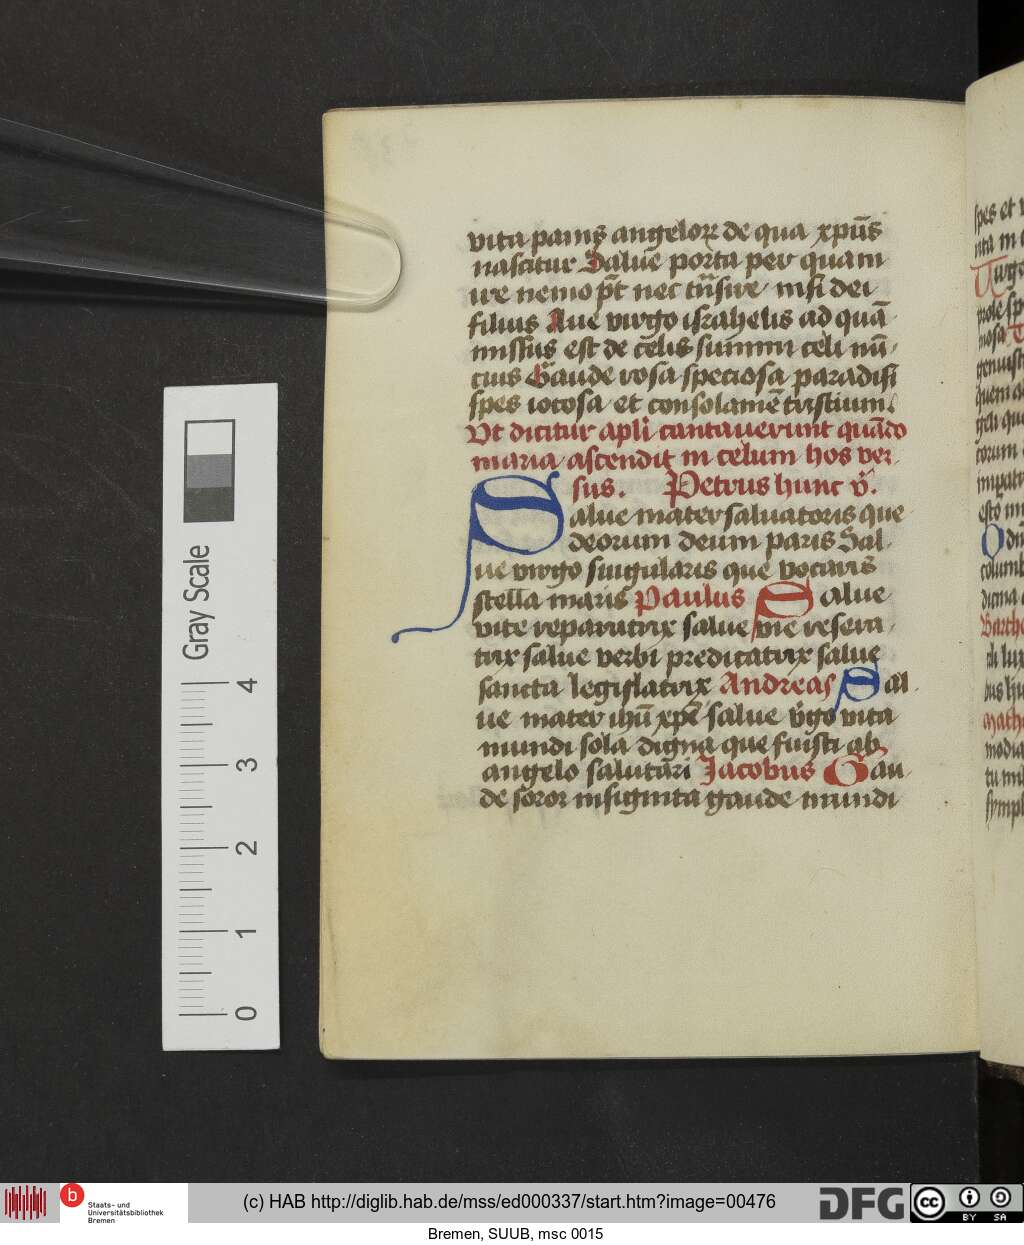 vita panis angeloꝝ de qua xpūs
nascitur Salue porta per quam
ire nemo pt̄ nec trn̄sire nisi dei
filius Aue virgo israhelis ad quā
missus est de celis summi celi nū-
cius Gaude rosa speciosa paradisi
spes iocosa et consolamē tristium.
Vt dicitur apli cantauerunt quādo
maria ascendit in celum hos ver
sus. Petrus hunc v̄.
Salue mater saluatoris que
deorum deum paris Sal-
ue virgo singularis que vocaris
stella maris Paulus Salue
vite reparatrix salue vie resera-
trix salue verbi predicatrix salue
sancta legislatrix Andreas Sal-
ue mater ihū xpē salue v̄go vita
mundi sola digna que fuisti ab
angelo salutāri Jacobus Gau-
de soror insignita gaude mundi
spes et
Gray Scale
4
3
2
1
0
b
Staats- und
Universitätsbibliothek
Bremen
(c) HAB http://diglib.hab.de/mss/ed000337/start.htm?image=00476
DFG
cc BY SA
Bremen, SUUB, msc 0015